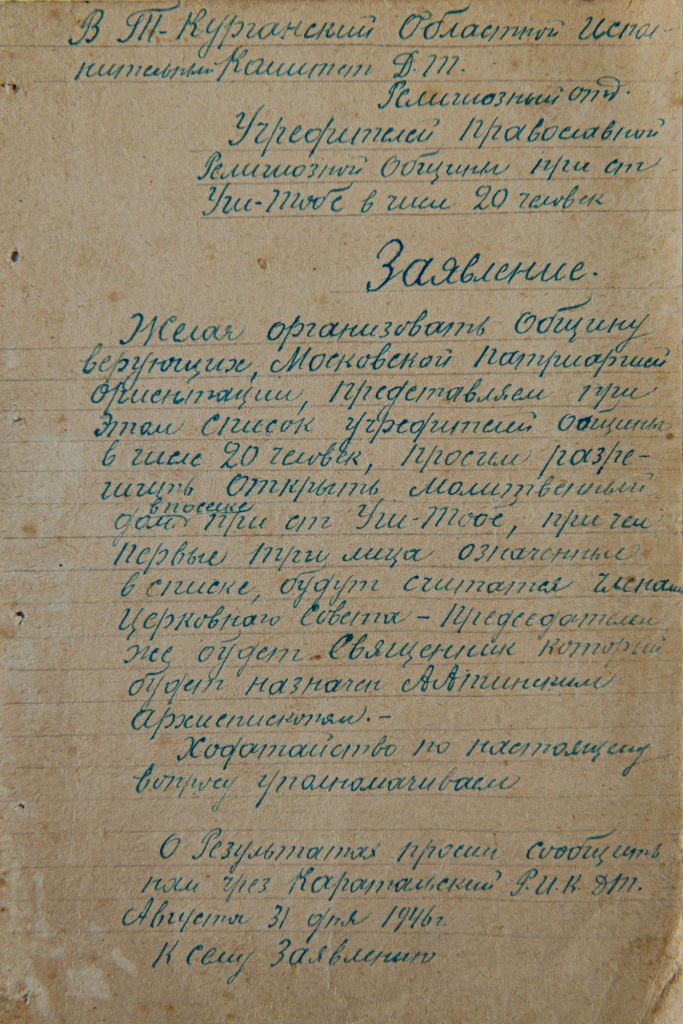 В Т-Курганский Областной Испол-
нительный Комитет Д.Т.
Религиозный отд.
Учредителей Православной
Религиозной Общины при ст
Уш-Тобе в числ 20 человек
Заявление.
Желая организовать Общину
верующих, Московской патриаршей
ориентации, представляем при
этом список учредителей общины
в числе 20 человек, просим разре-
шить открыть молитвенный
в поселке
дом при ст Уш-Тобе, при чем
первые три лица означенные
в списке, будут считатся членами
Церковнаго Совета – Председателем
же будет Священник который
будет назначен ААтинским
архиепископом. –
Ходатайство по настоящему
вопросу уполномачиваем
О Результатах просим сообщить
нам чрез Каратальский Р.И.К. ДТ.
Августа 31 дня 1946г.
К сему Заявлению